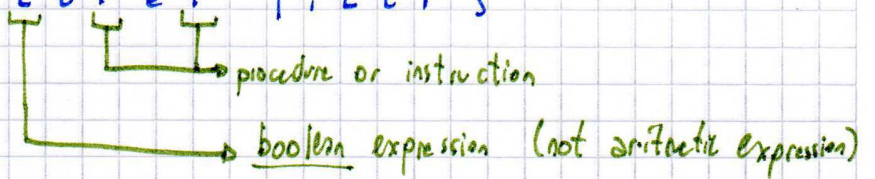 procedure or instruction
boolean expression (not aritmetic expression)